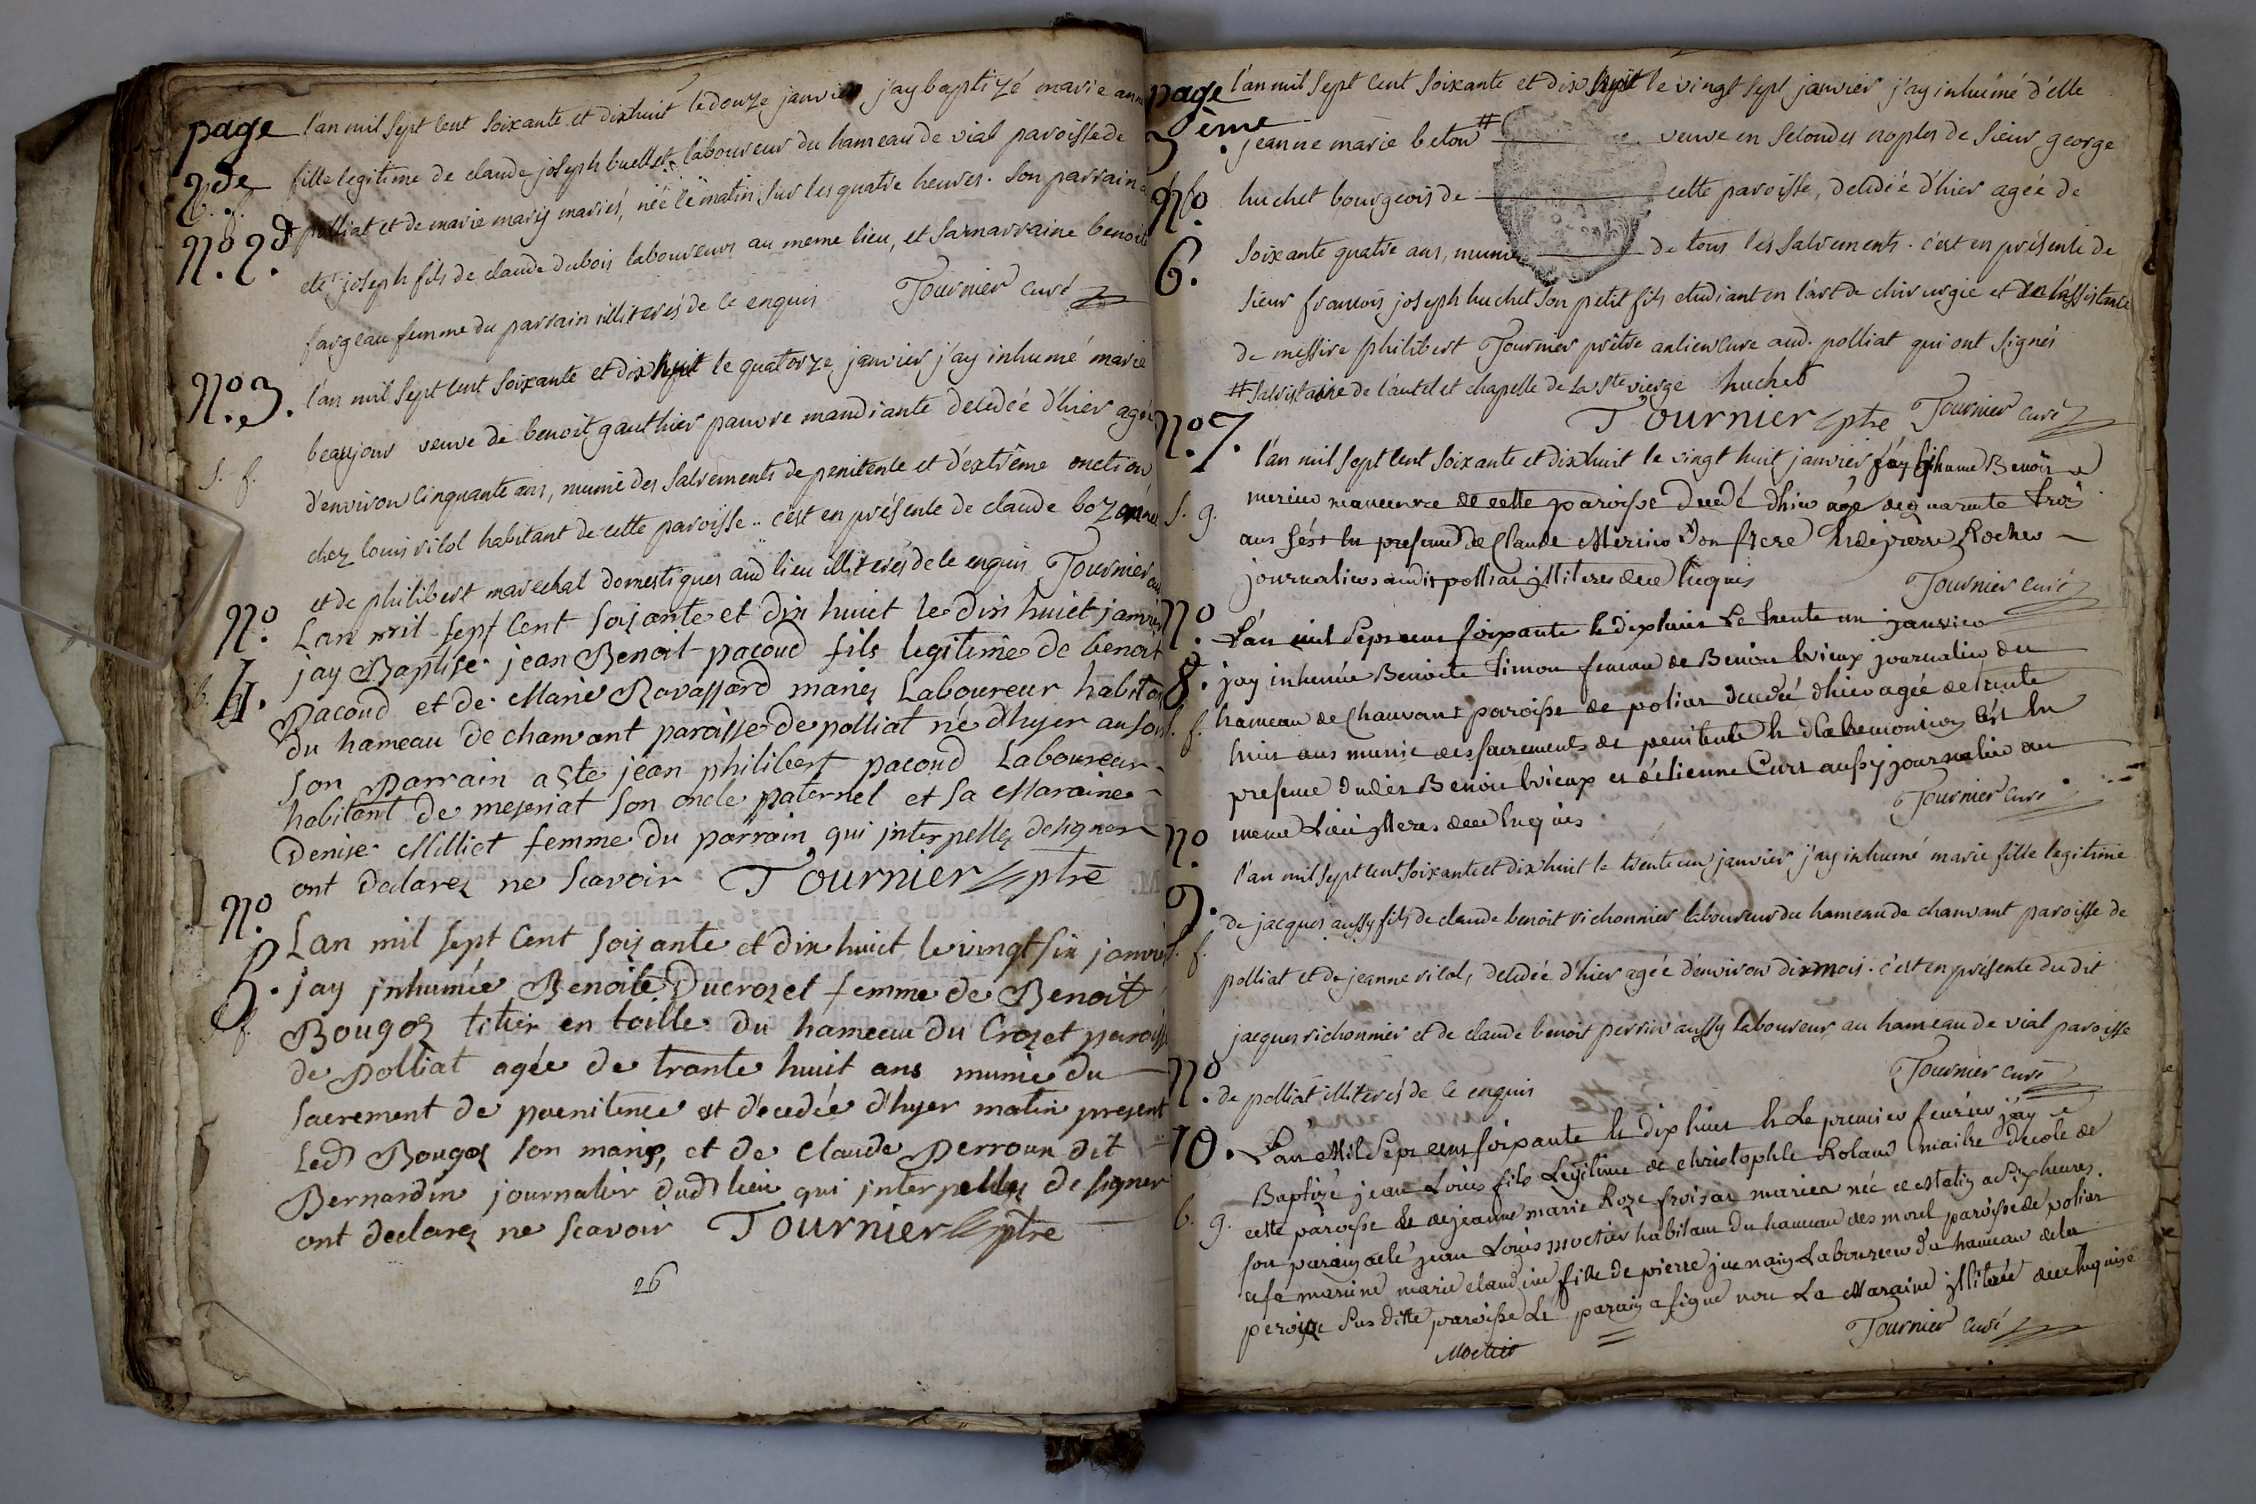 page 2de
b. f.
No. 2d
l'an mil sept cent soixante et dixhuit le douze janvier j'ay baptizé marie ann
fille legitime de claude joseph buellet laboureur du hameau de vial paroisse de
polliat et de marie mariés, née le matin sur les quatre heures. son parrain a
eté joseph fils de claude dubois laboureur au meme lieu, et sa marraine benoit
fargeau femme du parrain illiterés de ce enquis Tournier curé
No. 3.
s. f.
l'an mil sept cent soixante et dix huit le quatorze janvier j'ay inhumé marie
beaujour veuve de benoit gauthier pauvre mandiante decedée d'hier agée
d'environ cinquante ans, munie des sacrements de penitence et d'extrême onction
chez louis vilol habitant de cette paroisse.. c'est en présence de claude
et de philibert marechal domestiques aud lieu illiterés de ce enquis Tournier
No. 4.
b.
Lan mil sept cent soixante et dix huict le dix huict janvier
jay Baptise jean Benoit pacoud fils legitime de benoit
Pacoud et de Marie Ravassard mariez Laboureur habitan
du hameau de chanvant paroisse de polliat né d'hyer au soir
son Parrain a ete jean philibert pacoud Laboureur
habitant de mezeriat son oncle paternel et sa Maraine
Denise Milliet femme du parrain qui interpellez de signer
ont declarez ne scavoir Tournier ptre
No. 5.
f.
Lan mil sept cent soixante et dix huict le vingt six janvier
jay inhumée Benoite Ducrozet femme de Benoit
Bougoz titier en toille du hameau du Crozet paroisse
de Polliat agée de trante huit ans munie du
sacrement de poenitence et décedée d'hyer matin present
Led Bougoz son mari, et de claude Perroux dit
Bernardin journalier dud lieu qui interpellez de signer
ont declarez ne scavoir Tournier ptre
26
page 3ème.
No. 6.
l'an mil sept cent soixante et dix huit le vingt sept janvier j'ay inhumé d'elle
jeanne marie beton # veuve en secondes noples de sieur george
huchet bourgeois de cette paroisse, decedée d'hier agée de
soixante quatre ans, munie de tous les sacrements. c'est en présence de
sieur francois joseph huchet son petit fils etudiant en l'art de chirurgie et de l'assistance
de messire philibert Tournier prêtre ancien cure aud. polliat qui ont signés
# sacristaine de l'autel et chapelle de la Ste vierge huchet
Tournier ptre Tournier curé
No. 7.
s. g.
l'an mil sept cent soixante et dixhuit le vingt huit janvier j'ay inhumé Benoit
merieu manoeuvre de cette paroisse decedé d'hier agé de quarante trois
ans c'est en presence de Claude Merieu son frere et de pierre Rocher
journaliers audit polliat illiteres de ce enquis Tournier curé
No. 8.
s. f.
L'an mil sept cent soixante et dixhuit Le trente un janvier
j'ay inhumée Benoite Simon femme de Benoit brieux journalier du
hameau de Chanvant paroisse de poliat decedée d'hier agée de trente
huit ans munie des sacrements de penitence et c'est en
presence dudit Benoit brieux et d'étienne Curt aussy journalier au
meme Lieu illiteres de ce enquis Tournier curé
No. 9.
s. f.
l'an mil sept cent soixante et dixhuit le trente un janvier j'ay inhumé marie fille legitime
de jacques aussy fils de claude benoit richonnier laboureur du hameau de chanvant paroisse de
polliat et de jeanne vilol, decedée d'hier agée d'environ dix mois. c'est en présence du dit
jacques richonnier et de claude benoit perrin aussy laboureur au hameau de vial paroisse
de polliat illiterés de ce enquis Tournier curé
No. 10.
b. g.
L'an Mil Sept cens soixante et dix huit et Le premier fevrier j'ay
Baptizé jean Louis fils Legitime de christophle Roland maitre d'ecole de
cette paroisse et de jeanne marie Roze froisar mariez né ce Matin a six heures.
son parain a eté jean Louis moctier habitant du hameau des morel paroisse de poliat
et sa maraine marie claudine fille de pierre juenain Laboureur du hameau de la
peroise sus ditte paroisse Le parain a signé non La Maraine illiterée de ce enquise
Moctier Tournier curé